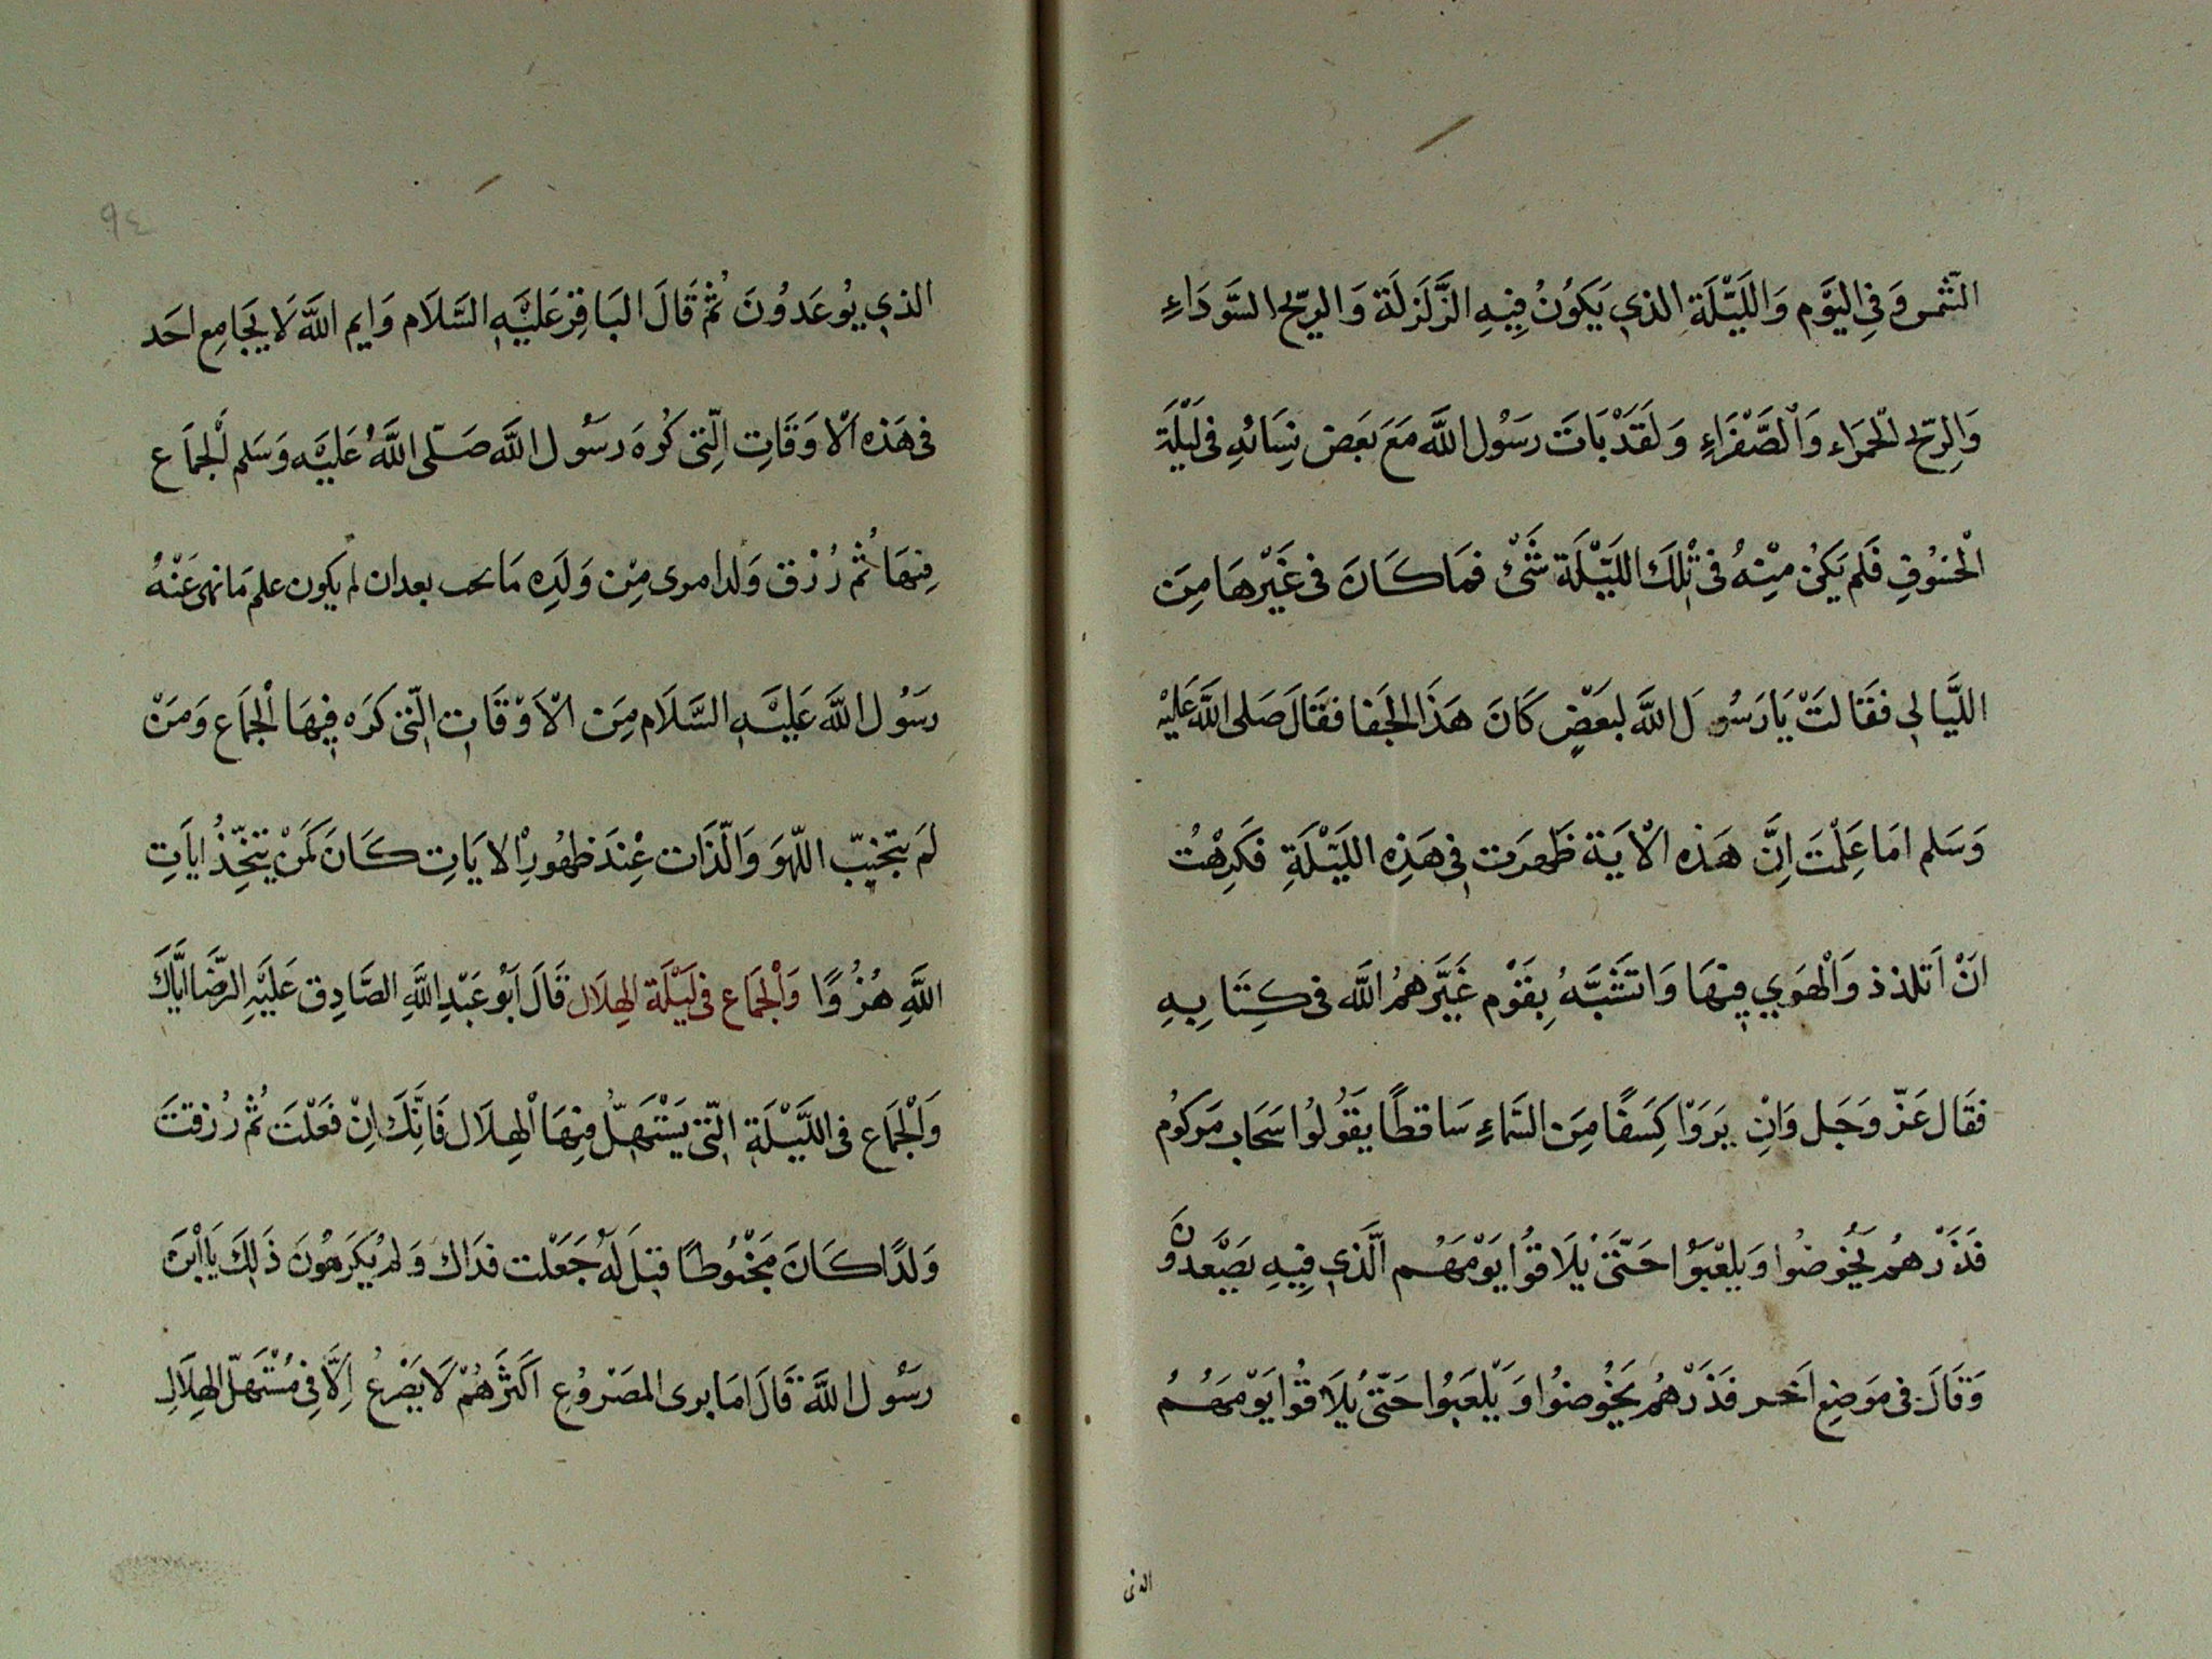 الشمس وَفِي اليَوْم وَاللَيْلَةِ الذي يَكوُنُ فِيهِ الزَّلزَلَة وَالرِيّح السَّودَاءِ
وَالِريّح الْحمَرَاء وَالْصَّفْرَاءِ وَلَقَدْ بَاتَ رسَوُل اللَّه مَعَ بَعَض نِسَائهِ فى لَيْلَة
الْخسُوُفِ فَلم يَكنُ مِنْهُ فى تْلِكَ اللَيْلَة شَئْ فمَا كَانَ فى غَيْرهَا مِنَ
اللَّيَالِي فقَالتْ يَا رَسُولَ اللَّه لبَعَضٍ كَانَ هَذَا الجَفا فقَالَ صَلى اللَّه عَليْه
وَسَلم امَا عَلِمْتَ اِنَّ هَذه الْايَة ظَهرَت فِي هَذِه اللَيْلَةِ فكَرِهْتُ
انَْ اَتلذذ وَالْهوَي فِيهَا وَاتشَبَّهُ بِقَوْم غَيَّرهمُ اللَّه فى كِتَابِهِ
فقَال عَزّ وجَل وَانِْ يَرَوْا كِسَفًا مِنَ السَّمَاءِ سَاقطًا يقَوُلوُا سَحَاب مَركوُم
فَذَرْهمُ يَخُوضُوا وَيلعْبَوُا حَتّىَ يُلَاقوُا يَوْمَهَم الَّذي فِيهِ يصَعَّدوُن
وَقَالَ فى مَوضِع اَخر فَذَرْهمُ يَخُوضوُا وَيَلْعَبوُا حَتّىُ يُلَاقوُا يَوْمهَمُ
الذى
٩٤
الذي يوُعَدوُنَ ثُمْ قَالَ البَاقِر عَليْهِ السَّلَام وَايم اللَّه لَا يجَامِع احَد
فى هَذه الْاوَقَاتِ الِتّى كرُهَ رسَوُل اللَّه صَلّى اللَّهُ عَليَه وَسَلم الْجمَاع
فِيهَا ثُم رُزق وَلدا مِن وَلَدِه مَا يحب بعد ان لم يكون علم مَا نهى عَنْهُ
رسَوُل اللَّه عَليْهِ السَّلَام مِنَ الْاَوْقَاتِ الّتى كَرَه فِيهَا الْجمَاع وَمَنْ
لمَ يتجَنبّ اللّهوَ وَالّذَات عِنْدَ ظهُورِ الايَاتِ كَانَ كَمَنْ يتخِّذُ ايَاتِ
اللَّهِ هُزُوًا وَالْجمَاع فى لَيْلَة الهِلَال قَالَ اَبوُ عَبْدِ اللَّهِ الصَّادِق عَليَهِ الرّضَا ايَّاكَ
وَالْجمَاع فى اللَّيْلَةِ الّتى يَسْتهَلّ فِيهَا الْهِلَال فَانِّكَ اِنْ فعَلْتَ ثُم رُزقتَ
وَلدًا كَانَ مَخْبُوطًا قيلَ لَهُ جَعَلْت فدَاك وَلم يكَرهوُنَ ذَلِكَ يَا ابْنَ
رسَوُل اللَّه قَالَ امَا يرى المصَروُعِ اَكثرَهُمْ لَا يصَرعُ اِلَّا فِى مُسْتهَلّ الهِلَالِ